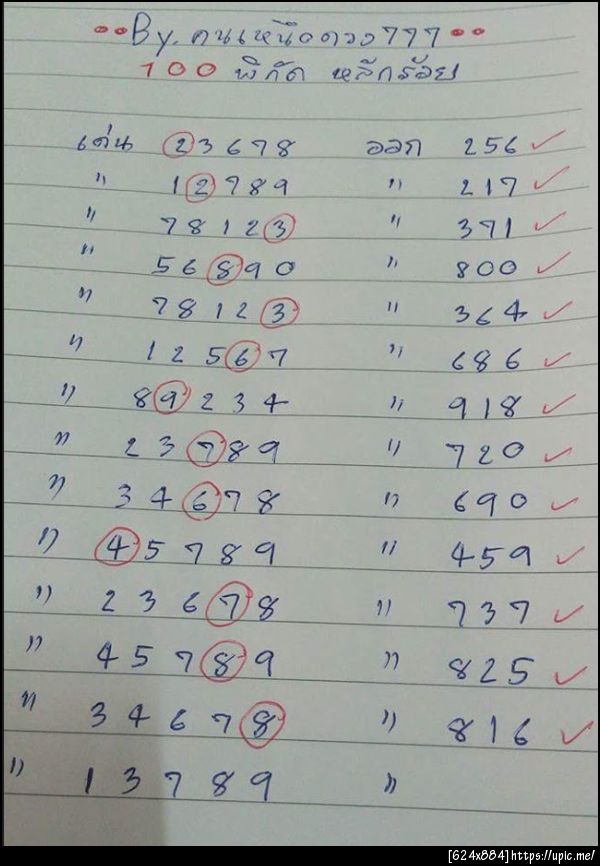 By. คนเหนือดวง777
100 พิกัด หลักร้อย
เด่น 23678 ออก 256 ✓
" 12789 " 217 ✓
" 78123 " 371 ✓
" 56890 " 800 ✓
" 78123 " 364 ✓
" 12567 " 686 ✓
" 89234 " 918 ✓
" 23789 " 720 ✓
" 34678 " 690 ✓
" 45789 " 459 ✓
" 23678 " 737 ✓
" 45789 " 825 ✓
" 34678 " 816 ✓
" 13789 "
[624x884]https://upic.me/